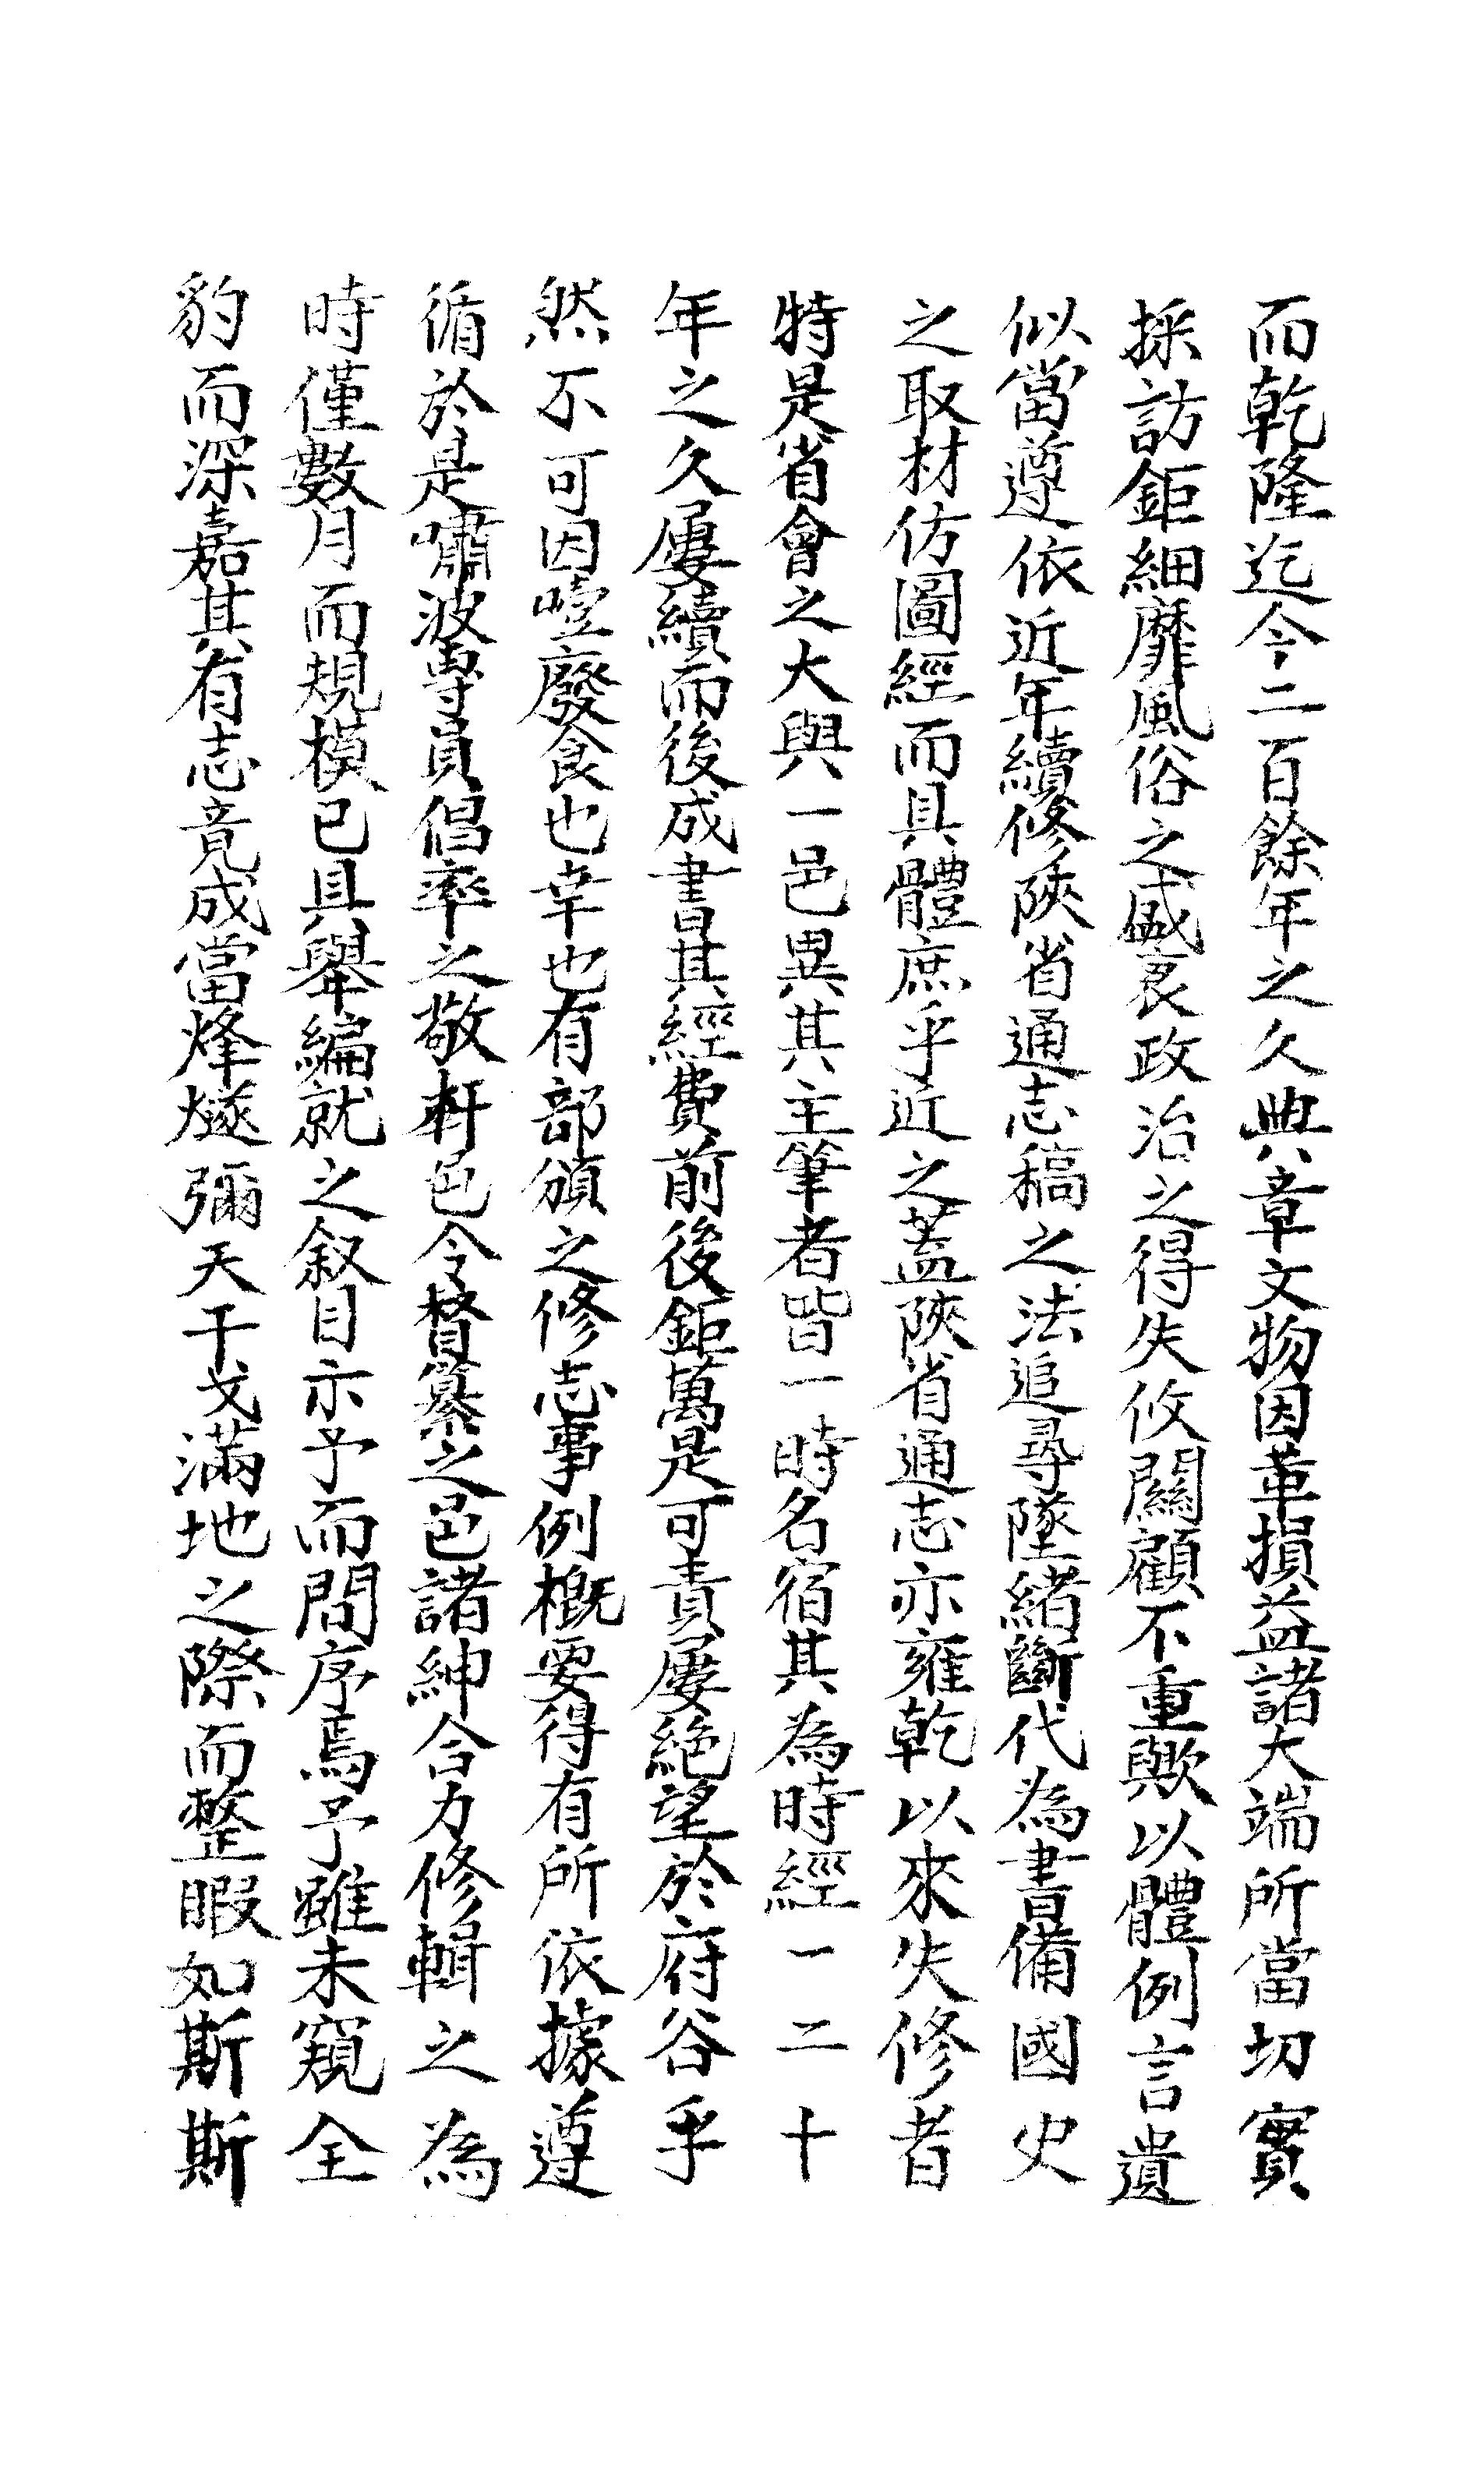 而乾隆迄今二百餘年之久典章文物因革損益諸大端所當切實
採訪鉅細靡風俗之盛衰政治之得失攸關顧不重歟以體例言遺
似當遵依近年續修陝省通志稿之法追尋墜緒斷代為書備國史
之取材仿圖經而具體庶乎近之蓋陝省通志亦雍乾以來失修者
特是省會之大與一邑異其主筆者皆一時名宿其為時經一二十
年之久屢續而後成書其經費前後鉅萬是可責屢絕望於府谷乎
然不可因噎廢食也幸也有部頒之修志事例概要得有所依據遵
循於是嘯波專員倡率之敬軒邑令督纂之邑諸紳合力修輯之為
時僅數月而規模已具舉編就之叙目示予而問序焉予雖未窺全
豹而深嘉其有志竟成當烽燧彌天干戈滿地之際而整暇如斯斯